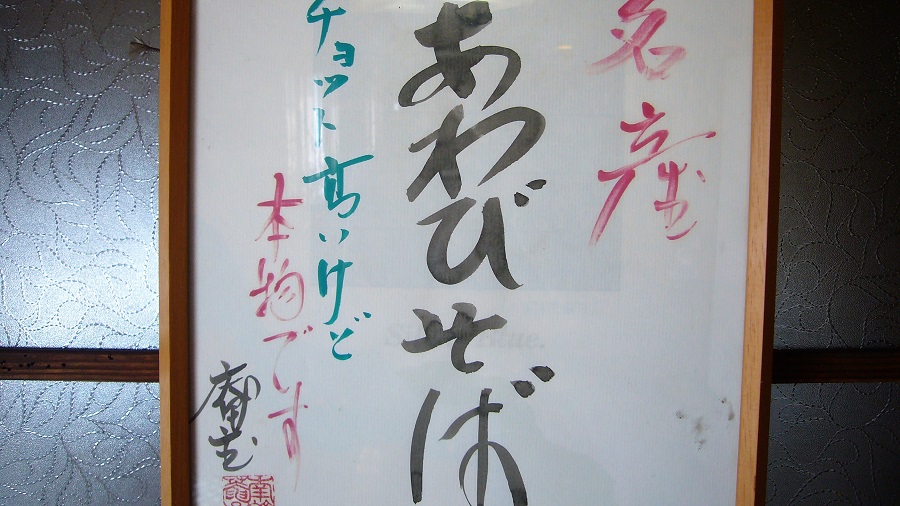 名産
あわびそば
チョット高いけど
本物です
庵主